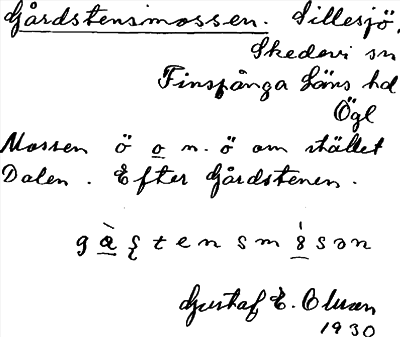 Gårdstensmossen. Sillesjö,
Skedevi sn
Finspånga Läns hd
Ögl
Mossen ö o n.ö om stället
Dalen. Efter Gårdstenen.
Gustaf E. Olson
1930